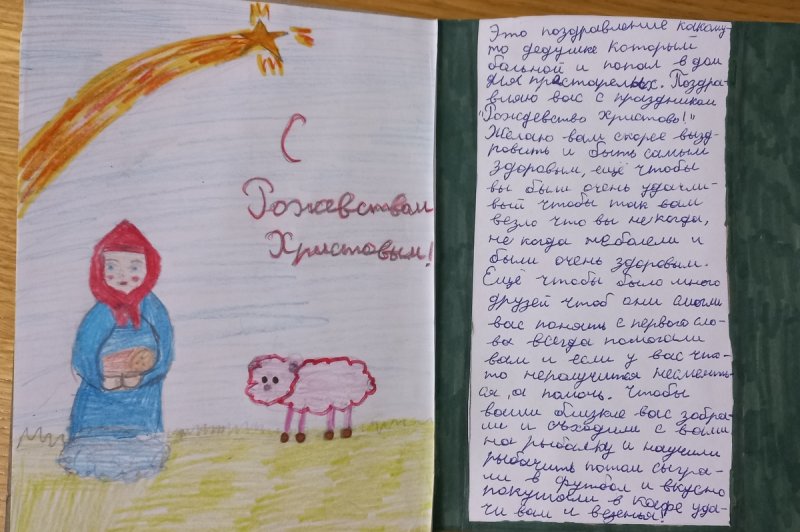 С
Рожевствам
Христовым!
Это поздравление какому
то дедушке который
больной и попал в дом
для прастарелых. Поздра-
вляю вас с праздником
"Рождевство Христово!"
Желаю вам скорее вызд-
ровить и быть самым
здоровым, ещё чтобы
вы были очень удачли-
вый чтобы так вам
везло что вы не когда,
не когда неболели и
были очень здоровым.
Ещё чтобы было много
друзей чтоб они смогли
вас понять с первого сло-
ва всегда помогали
вам и если у вас что-
то неполучится несмеять-
ся, а помочь. Чтобы
ваши близкие вас забра-
ли и съходили с вами
на рыбалку и научили
рыбачить потом сыгра-
ли в футбол и вкусно
покушали в кафе уда-
чи вам и везенья!